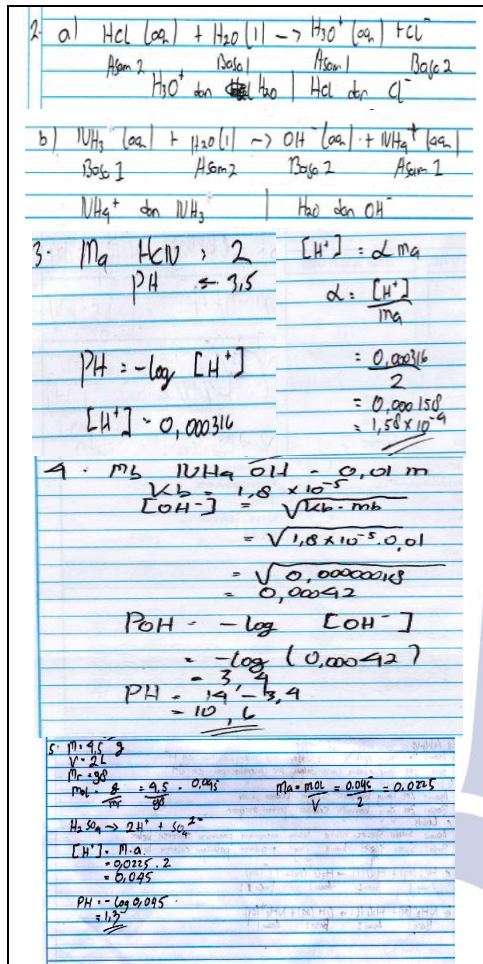 2. a) HCl (aq) + H2O (l) -> H3O+ (aq) + Cl-
Asam 2 Basa 1 Asam 1 Basa 2
H3O+ dan H2O | HCl dan Cl-
b) NH3 (aq) + H2O (l) -> OH- (aq) + NH4+ (aq)
Basa 1 Asam 2 Basa 2 Asam 1
NH4+ dan NH3 | H2O dan OH-
3. Ma HCN = 2
PH = 3,5
PH = -log [H+]
[H+] = 0,000316
[H+] = α ma
α = [H+]
ma
= 0,000316
2
= 0,000158
= 1,58 x 10-4
4. Mb NH4 OH = 0,01 m
Kb = 1,8 x 10-5
[OH-] = √Kb . mb
= √1,8 x 10-5 . 0,01
= √0,00000018
= 0,00042
POH = -log [OH-]
= -log (0,00042)
= 3,4
PH = 14 - 3,4
= 10,6
5. M = 4,5 g
V = 2L
Mr = 98
mol = g/mr = 4,5/98 = 0,045
Ma = mol/V = 0.045/2 = 0.0225
H2SO4 → 2H+ + SO4 2-
[H+] = M.a
= 0,0225 . 2
= 0,045
PH = -log 0,045
= 1,3